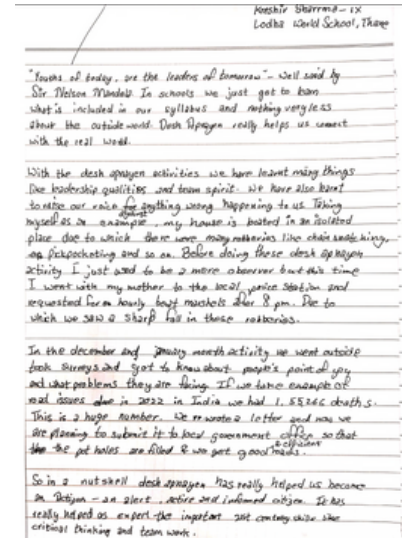 Sharma - IX
Lodha World School, Thane
"Youths of today, are the leaders of tomorrow" - well said by
Sir Nelson Mandela. In schools we just get to learn
what is included in our syllabus and nothing very less
about the outside world. Desh Apnayen really helps us connect
with the real world.
With the desh apnayen activities we have learnt many things
like leadership qualities and team spirit. We have also learnt
to raise our voice against anything wrong happening to us. Taking
myself as an example, my house is located in an isolated
place due to which there were many robberies like chain snatching,
pickpocketing and so on. Before doing these desh apnayen
activity I just used to be a mere observer but this time
I went with my mother to the local police station and
requested for an hourly beat marshels after 8 pm. Due to
which we saw a sharp fall in these robberies.
In the december and january month activity we went outside
took surveys and got to know about people's point of
and what problems they are facing. If we take example of
road issues in 2022 in India we had 1,55,266 deaths.
This is a huge number. We wrote a letter and now we
are planning to submit it to local government so that
the pot holes are filled & we get good & efficient roads.
So in a nutshell desh apnayen has really helped us become
an - an alert, active and informed citizen. It has
really helped us expert the important 21st century skills like
critical thinking and team work.